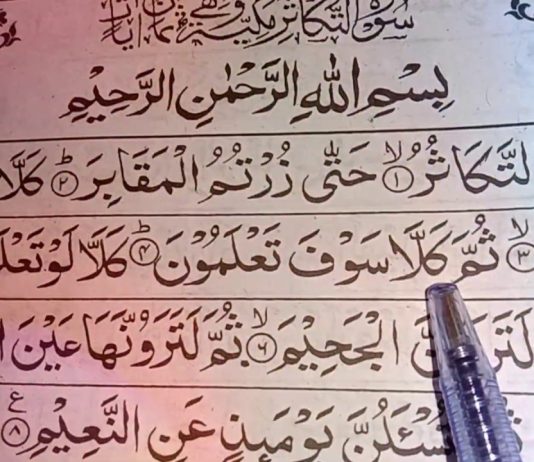 سُوْرَةُ التَّكَاثُرِ مَكِّيَّةٌ وَّهِيَ ثَمَانُ اٰيَاتٍ
بِسْمِ اللهِ الرَّحْمٰنِ الرَّحِيْمِ
لتَّكَاثُرُ ۙ ﴿١﴾ حَتّٰى زُرْتُمُ الْمَقَابِرَ ؕ ﴿٢﴾ كَلَّا
ۙ ﴿٣﴾ ثُمَّ كَلَّا سَوْفَ تَعْلَمُوْنَ ؕ ﴿٤﴾ كَلَّا لَوْ تَعْلَ
الْجَحِيْمَ ۙ ﴿٦﴾ ثُمَّ لَتَرَوُنَّهَا عَيْنَ ا
سْئَلُنَّ يَوْمَئِذٍ عَنِ النَّعِيْمِ ﴿٨﴾ ع